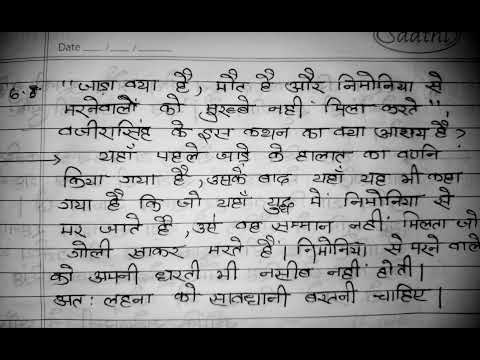 Saathi
Date __/__/__
6.8 "जाड़ा क्या है, मौत है और निमोनिया से
मरनेवालों को मुरब्बे नहीं मिला करते",
वजीरासिंह के इस कथन का क्या आशय है?
→ यहाँ पहले जाड़े के हालात का वर्णन
किया गया है, उसके बाद यहाँ यह भी कहा
गया है कि जो यहाँ युद्ध में निमोनिया से
मर जाते हैं, उसे वह सम्मान नहीं मिलता जो
गोली खाकर मरते हैं। निमोनिया से मरने वाले
को अपनी धरती भी नसीब नहीं होती।
अत: लहना को सावधानी बरतनी चाहिए।